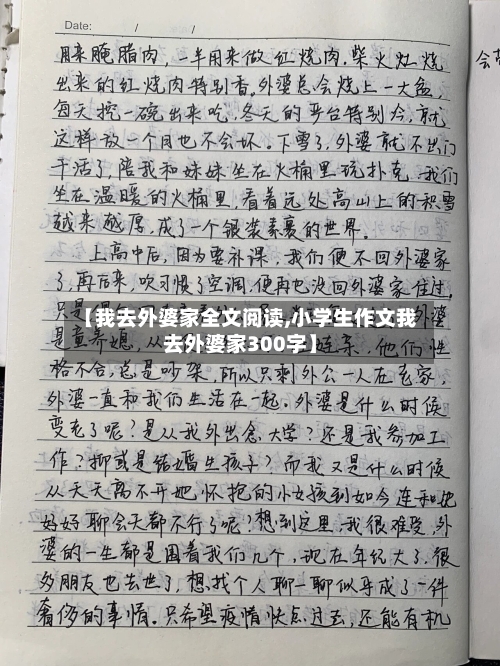 Date: / /
用来腌腊肉,一半用来做红烧肉.柴火灶烧
出来的红烧肉特别香,外婆总会烧上一大盆
每天挖一碗出来吃.冬天的平台特别冷,就
这样放一个月也不会坏。下雪了,外婆就不出门
干活了,陪我和妹妹坐在火桶里玩扑克.我们
坐在温暖的火桶里,看着远处高山上的积雪
越来越厚,成了一个银装素裹的世界。
上高中后,因为要补课,我们便不回外婆家
了,再后来,吹习惯了空调,便再也没回外婆家住过,
【我去外婆家全文阅读,小学生作文我
去外婆家300字】
是童养媳,从
他们性
格不合,总是吵架,所以只剩外公一人在老家,
外婆一直和我们生活在一起.外婆是什么时候
变老了呢?是从我外出念大学?还是我参加工
作?抑或是结婚生孩子?而我又是什么时候
从天天离不开她怀抱的小女孩到如今连和她
好好聊会天都不行了呢?想到这里,我很难受,外
婆的一生都是围着我们几个,现在年纪大了,很
多朋友也去世了,想找个人聊一聊似乎成了一件
奢侈的事情。只希望疫情快点过去,还能有机
会